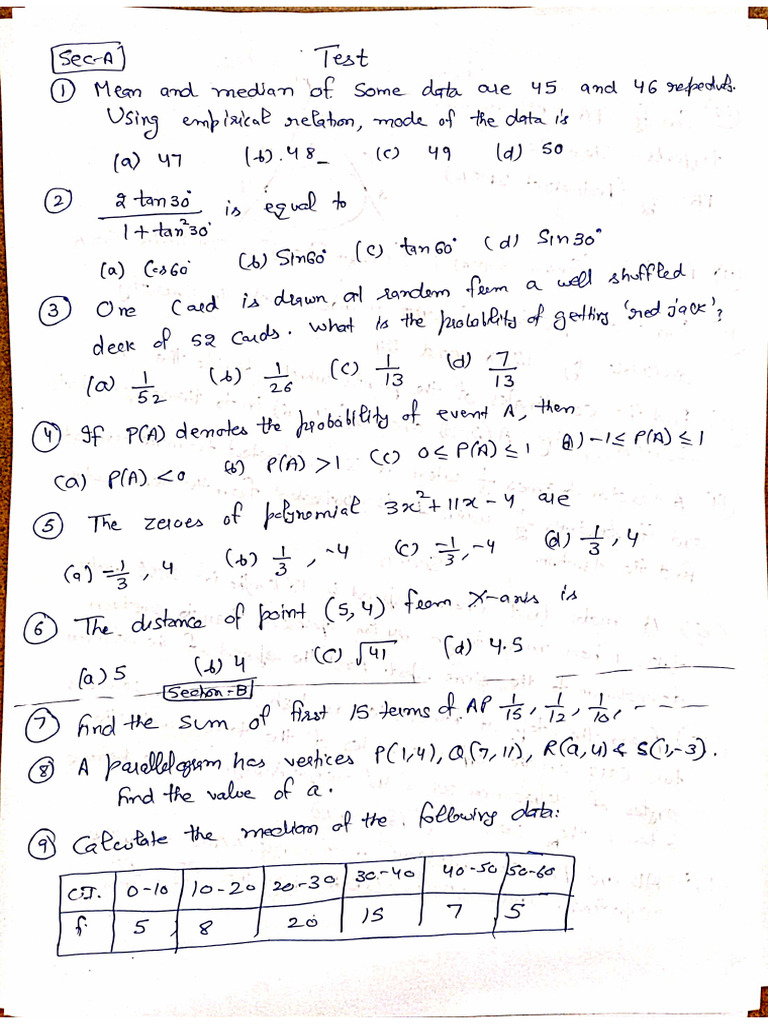 Sec-A Test
① Mean and median of some data are 45 and 46
Using empirical relation, mode of the data is
(a) 47 (b) 48 (c) 49 (d) 50
② 2 tan30° / 1 + tan²30° is equal to
(a) Cos60° (b) Sin60° (c) tan60° (d) Sin30°
③ One Card is drawn, at random from a well shuffled
deck of 52 Cards. What is the probability of getting 'red jack'?
(a) 1/52 (b) 1/26 (c) 1/13 (d) 7/13
④ If P(A) denotes the probability of event A, then
(a) P(A) < 0 (b) P(A) > 1 (c) 0 ≤ P(A) ≤ 1 (d) -1 ≤ P(A) ≤ 1
⑤ The zeroes of polynomial 3x² + 11x - 4 are
(a) -1/3, 4 (b) 1/3, -4 (c) -1/3, -4 (d) 1/3, 4
⑥ The distance of point (5, 4) from X-axis is
(a) 5 (b) 4 (c) √41 (d) 4.5
Section-B
⑦ Find the sum of first 15 terms of AP 1/15, 1/12, 1/10, ----
⑧ A parallelogram has vertices P(1,4), Q(7,11), R(a,4) & S(1,-3).
find the value of a.
⑨ Calculate the median of the following data:
C.I. 0-10 10-20 20-30 30-40 40-50 50-60
f. 5 8 20 15 7 5